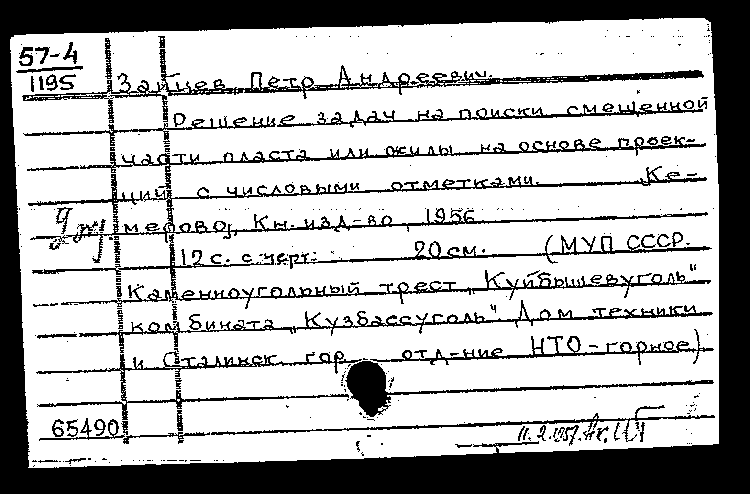 57-4
1195
Зайцев, Петр Андреевич.
Решение задач на поиски смещенной
части пласта или жилы на основе проек-
ций с числовыми отметками. Ке-
мерово, Кн. изд-во, 1956
12 с. с черт. 20 см. (МУП СССР.
Каменноугольный трест „Куйбышевуголь"
комбината „Кузбассуголь". Дом техники
и Сталинск. гор. отд-ние НТО-горное)
65490